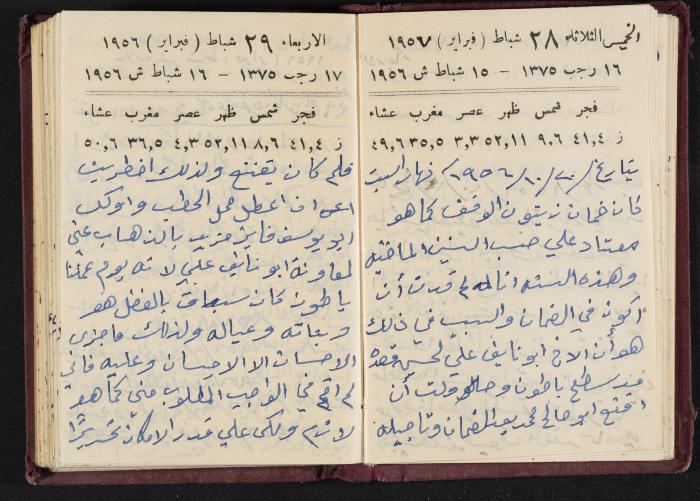 الخميس الثلاثاء ٢٨ شباط ( فبراير ) ١٩٥٧
١٦ رجب ١٣٧٥ – ١٥ شباط ش ١٩٥٦
فجر شمس ظهر عصر مغرب عشاء
ز ٤١,٤ ٩,٦ ٥٢,١١ ٣,٣ ٣٥,٥ ٤٩,٦
بتاريخ ٢٠/١٠/١٩٥٦ نهار السبت
كان ضمان زيتون الوقف كما هو
معتاد علي حسب السنين الماضيه
وهذه السنه انا لم قدرت أن
اكون في الضمان والسبب في ذلك
هو أن الاخ ابو نايف علي لحسين
عن سطح باطون و قلت أن
اقنع ابو صالح محمد بعد الضمان وتاجيله
الاربعاء ٢٩ شباط ( فبراير ) ١٩٥٦
١٧ رجب ١٣٧٥ – ١٦ شباط ش ١٩٥٦
فجر شمس ظهر عصر مغرب عشاء
ز ٤١,٤ ٨,٦ ٥٢,١١ ٤,٣ ٣٦,٥ ٥٠,٦
فلم كان يقتنع ولذلك اضطريت
ان اعطل محل الحطب واوكل
ابو يوسف فايز مزيد بالذهاب عني
لمعاونة ابو نايف علي لانه يوم عملنا
باطون كان سباق بالفضل هو
وبناته وعياله ولذلك ما جزى
الاحسان الا الاحسان وعليه فاني
لم اقم في الواجب المطلوب مني كما هو
لازم ولكن علي قدر الامكان تحريرا